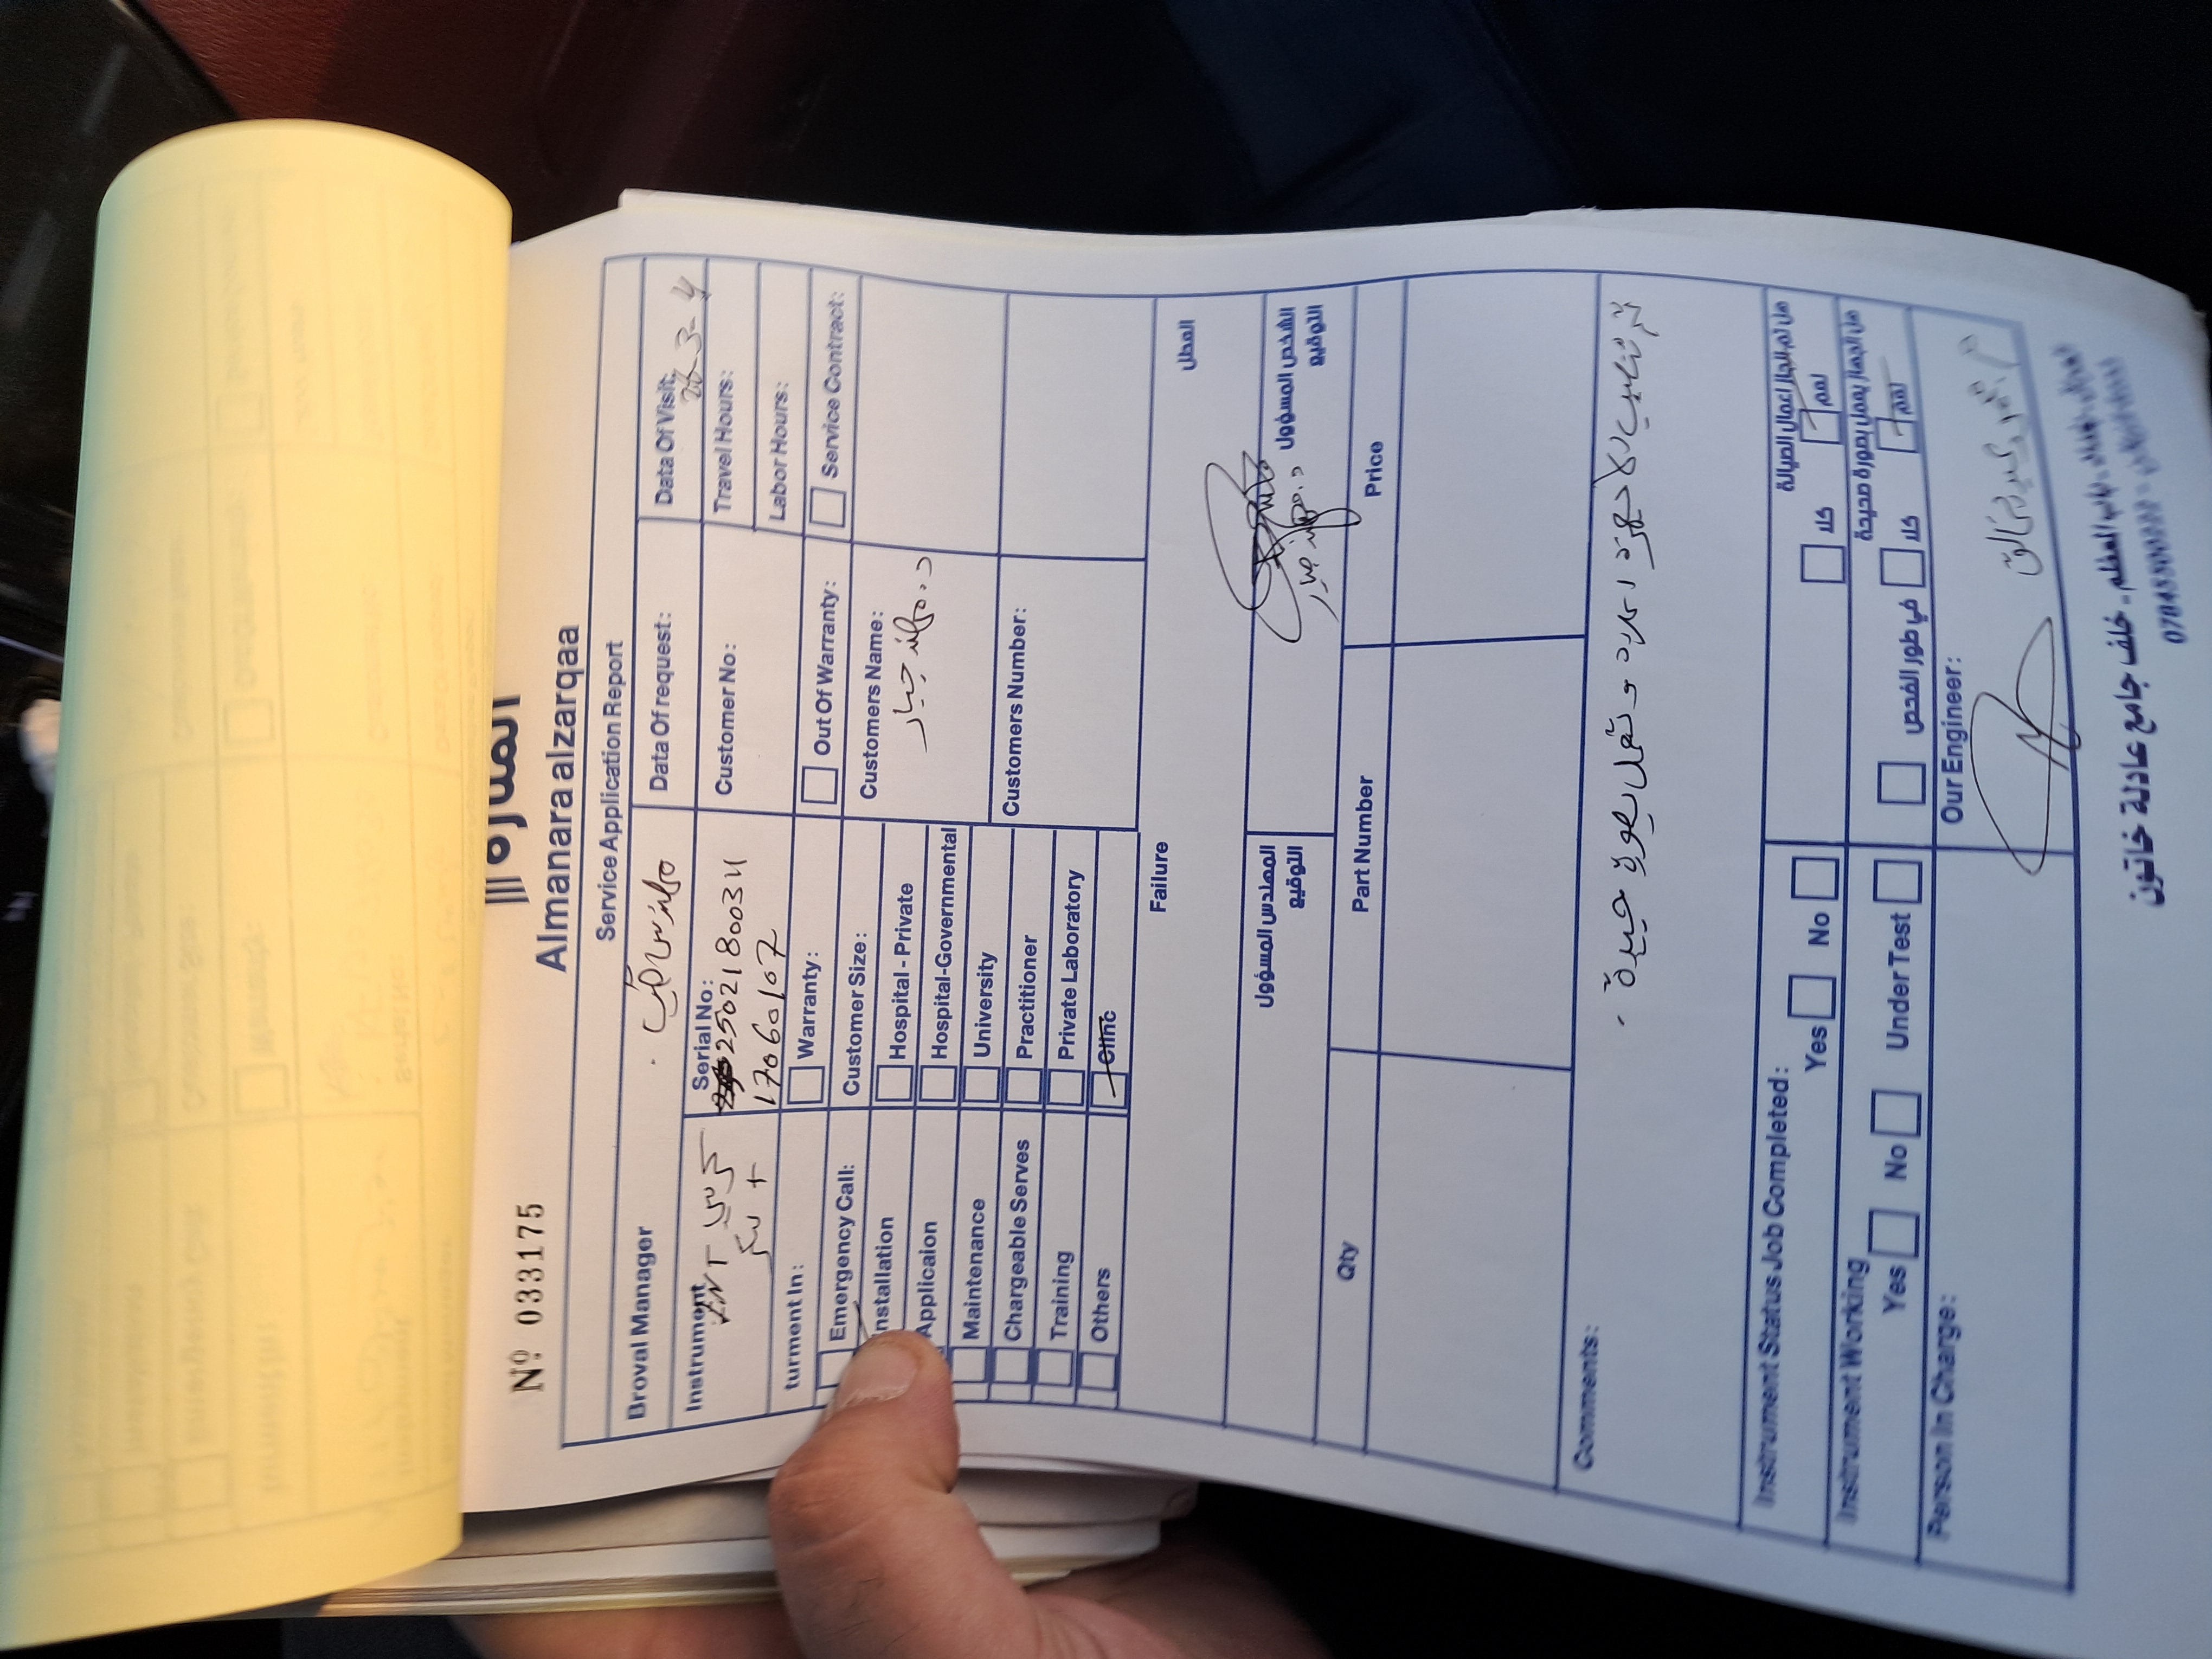 المنارة
Nº 033175
Almanara alzarqaa
Service Application Report
Broval Manager
Data Of request:
Data Of Visit:
26-3-4
Instrument
ENT يونت
Serial No:
250218003
17060107
Customer No:
Travel Hours:
Labor Hours:
turment In:
Warranty:
Out Of Warranty:
Service Contract:
Emergency Call:
Customer Size:
Customers Name:
installation
Hospital - Private
Applicaion
Hospital-Governmental
Maintenance
University
Customers Number:
Chargeable Serves
Practitioner
Training
Private Laboratory
Others
Clinc
Failure
العطل
المهندس المسؤول
التوقيع
الشخص المسؤول
التوقيع
Qty
Part Number
Price
Comments:
تم تنصيب الاجهزة اعلاه وتعمل بصورة جيدة .
Instrument Status Job Completed:
Yes
No
هل تم انجاز اعمال الصيانة
نعم
كلا
Instrument Working
Yes
No
Under Test
هل الجهاز يعمل بصورة صحيحة
نعم
كلا
في طور الفحص
Person in Charge:
Our Engineer:
باب المعظم - خلف جامع عادلة خاتون